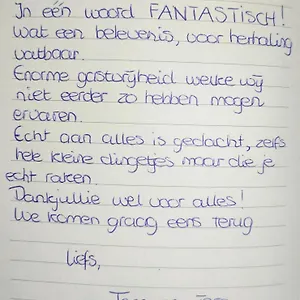 In één woord FANTASTISCH!
wat een belevenis, voor herhaling
vatbaar.
Enorme gastvrijheid welke wij
niet eerder zo hebben mogen
ervaren.
Echt aan alles is gedacht, zelfs
hele kleine dingetjes maar die je
echt raken.
Dankjullie wel voor alles!
We komen graag eens terug
liefs,